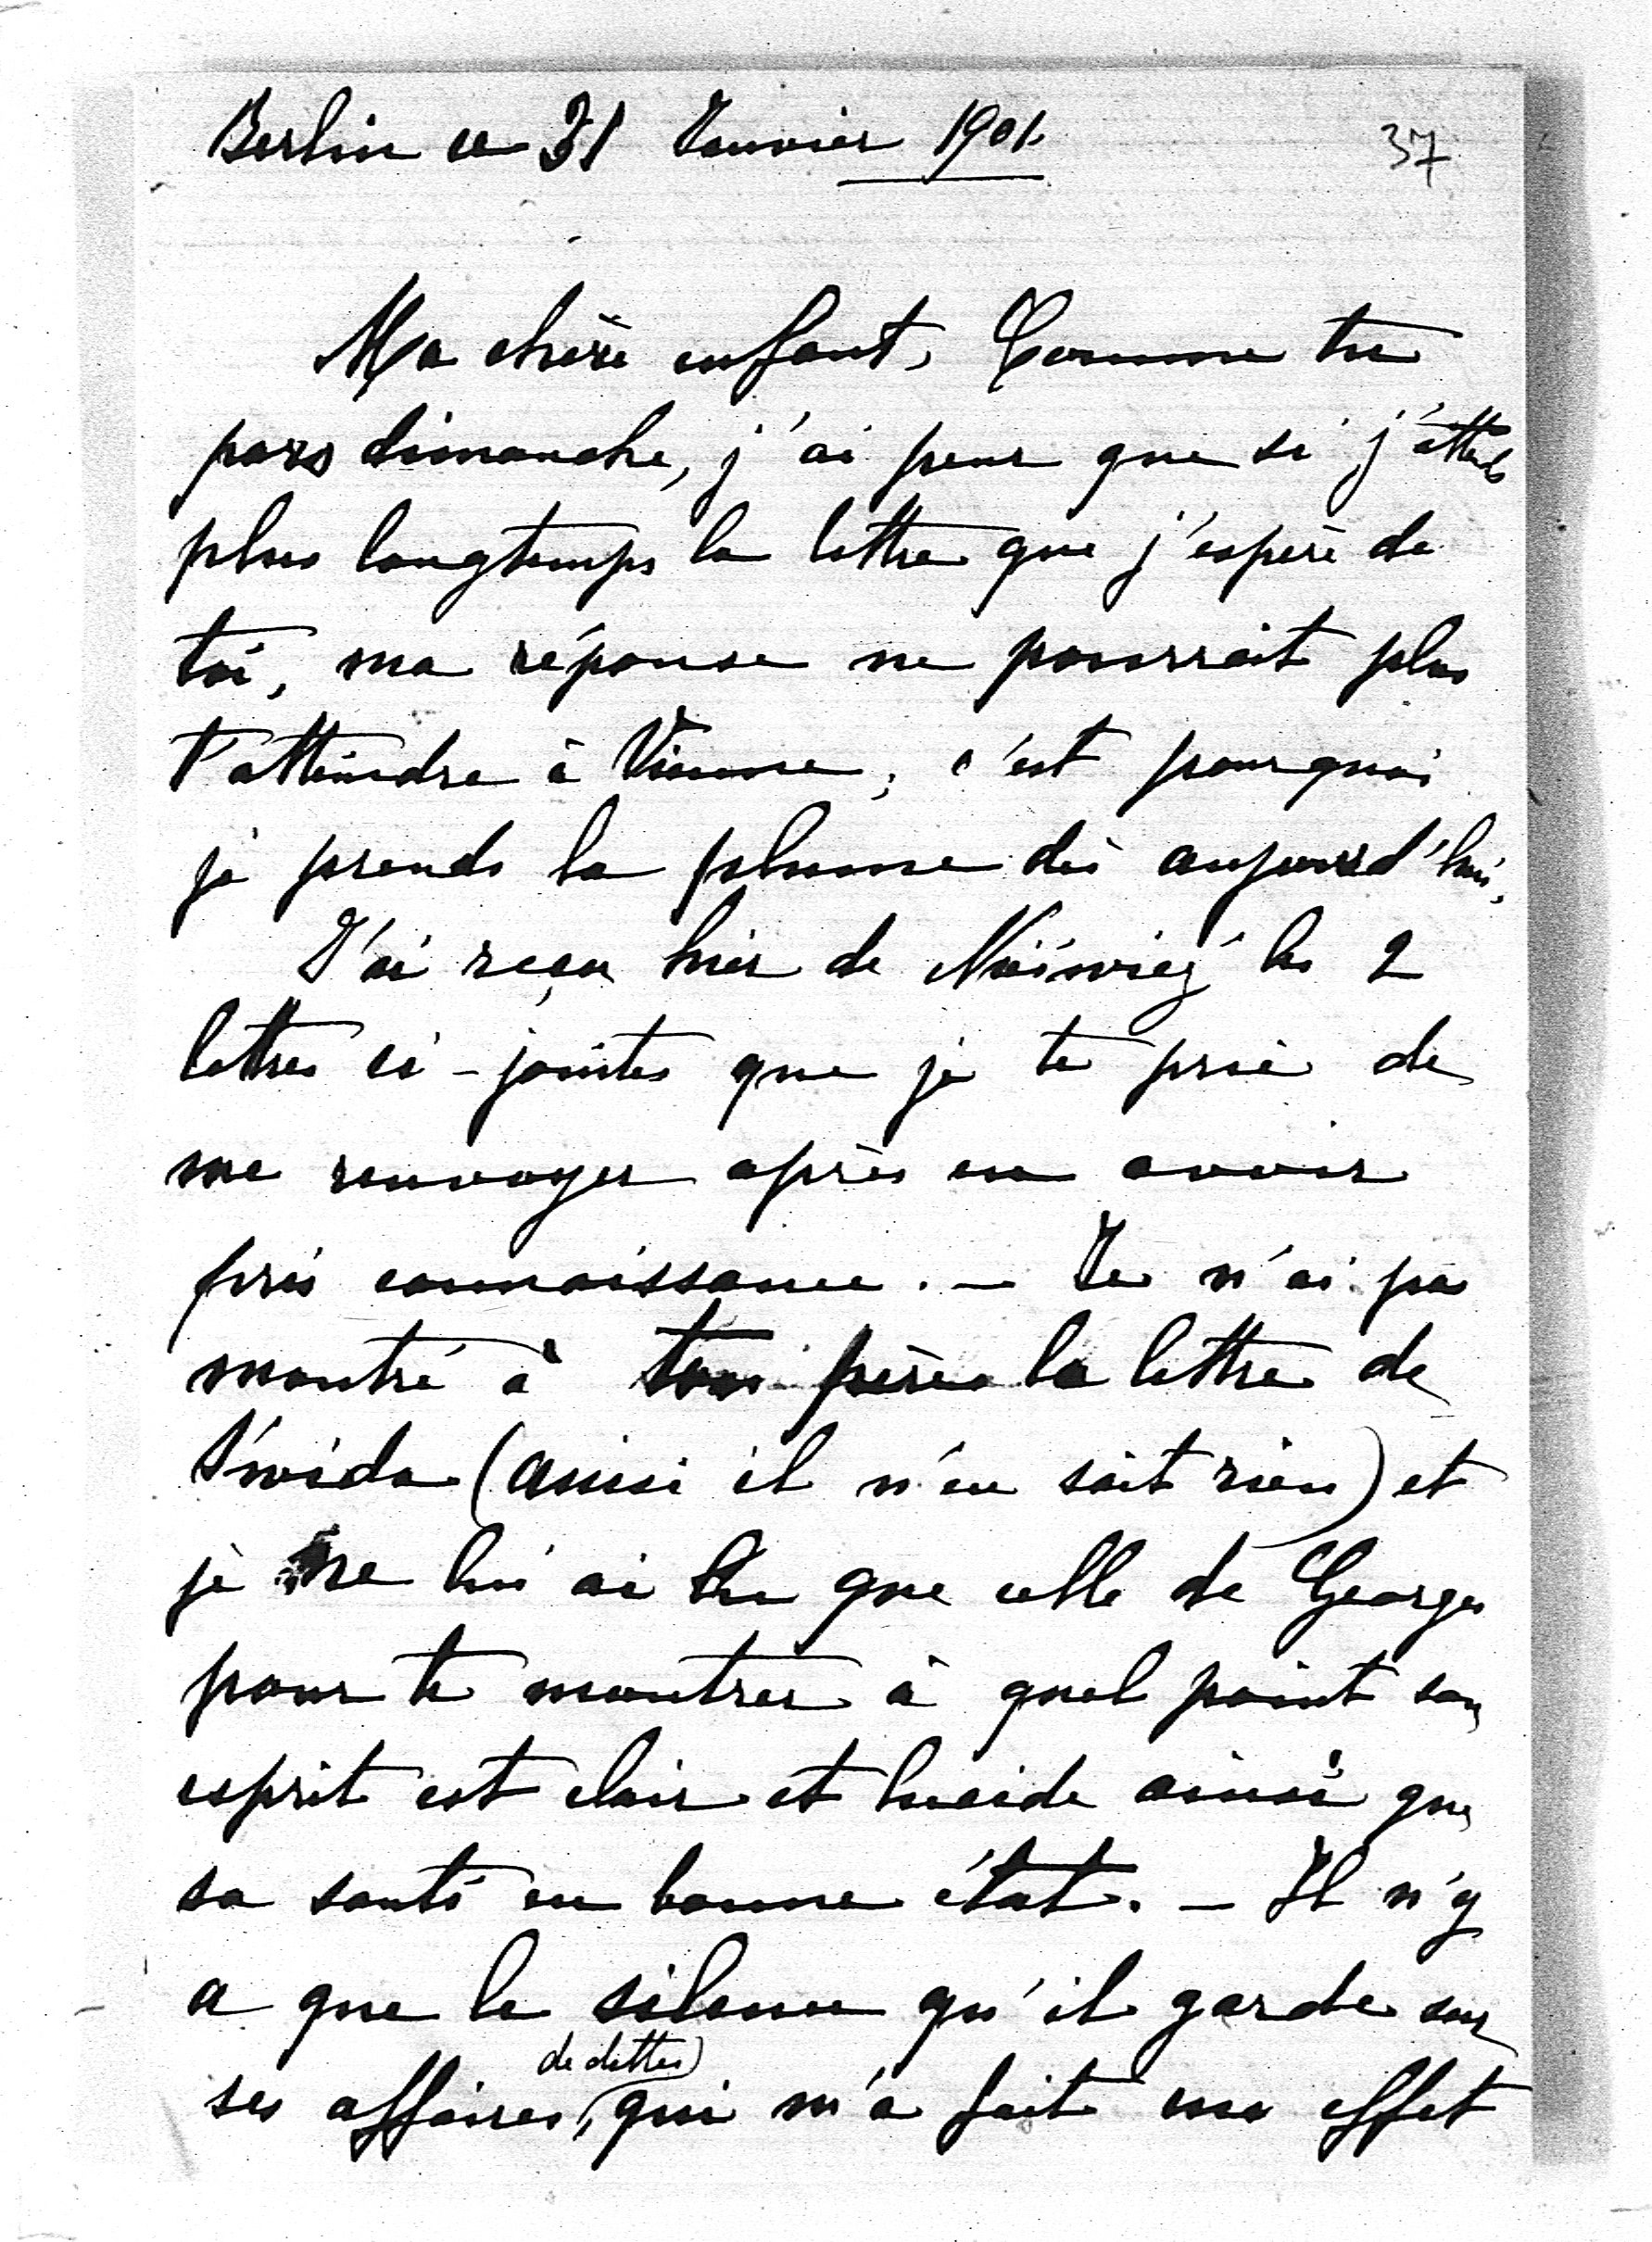 Berlin ce 31 Janvier 1901.
37
Ma chère enfant, Comme tu
pars dimanche, j'ai peur que si j'attends
plus longtemps la lettre que j'espère de
toi, ma réponse ne pourrait plus
t'atteindre à Vienne; c'est pourquoi
je prends la plume dès aujourd'hui.
J'ai reçu hier de Niéświeź les 2
lettres ci-jointes que je te prie de
me renvoyer après en avoir
pris connaissance. — Je n'ai pas
montré à ton père la lettre de
(aussi il n'en sait rien) et
je ne lui ai lu que celle de Georges
pour te montrer à quel point son
esprit est clair et lucide ainsi que
sa santé en bonne état. — Il n'y
a que le silence qu'il garde sur
de dettes
ses affaires, qui m'a fait un effet